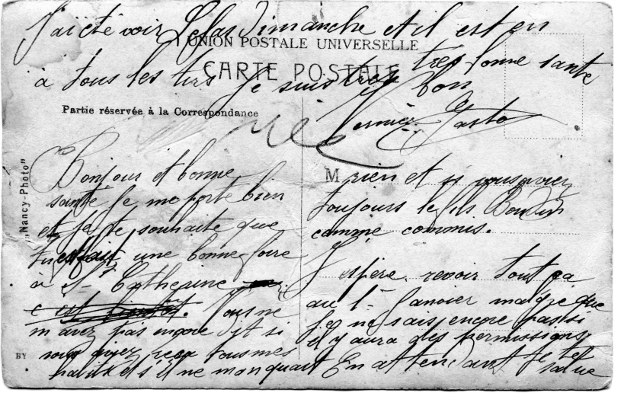 J'ai été voir Dimanche et il est en
très bonne santé
à tous les je suis trop bon
Dernier Gaston
UNION POSTALE UNIVERSELLE
CARTE POSTALE
Partie réservée à la Correspondance
"Nancy-Photo"
BY
Bonjour et bonne
santé je me porte bien
et je te souhaite que
tu une bonne foire
à St Catherine
c'est
Vous ne
m'avez pas encore dit si
vous avez reçu tous mes
s'il ne manquait
M
rien et si vous aviez
toujours le fils
comme commis.
J'espère revoir tout ça
au 1er Janvier malgré que
je ne sais encore pas si
il y aura des permissions
En attendant je te
salue